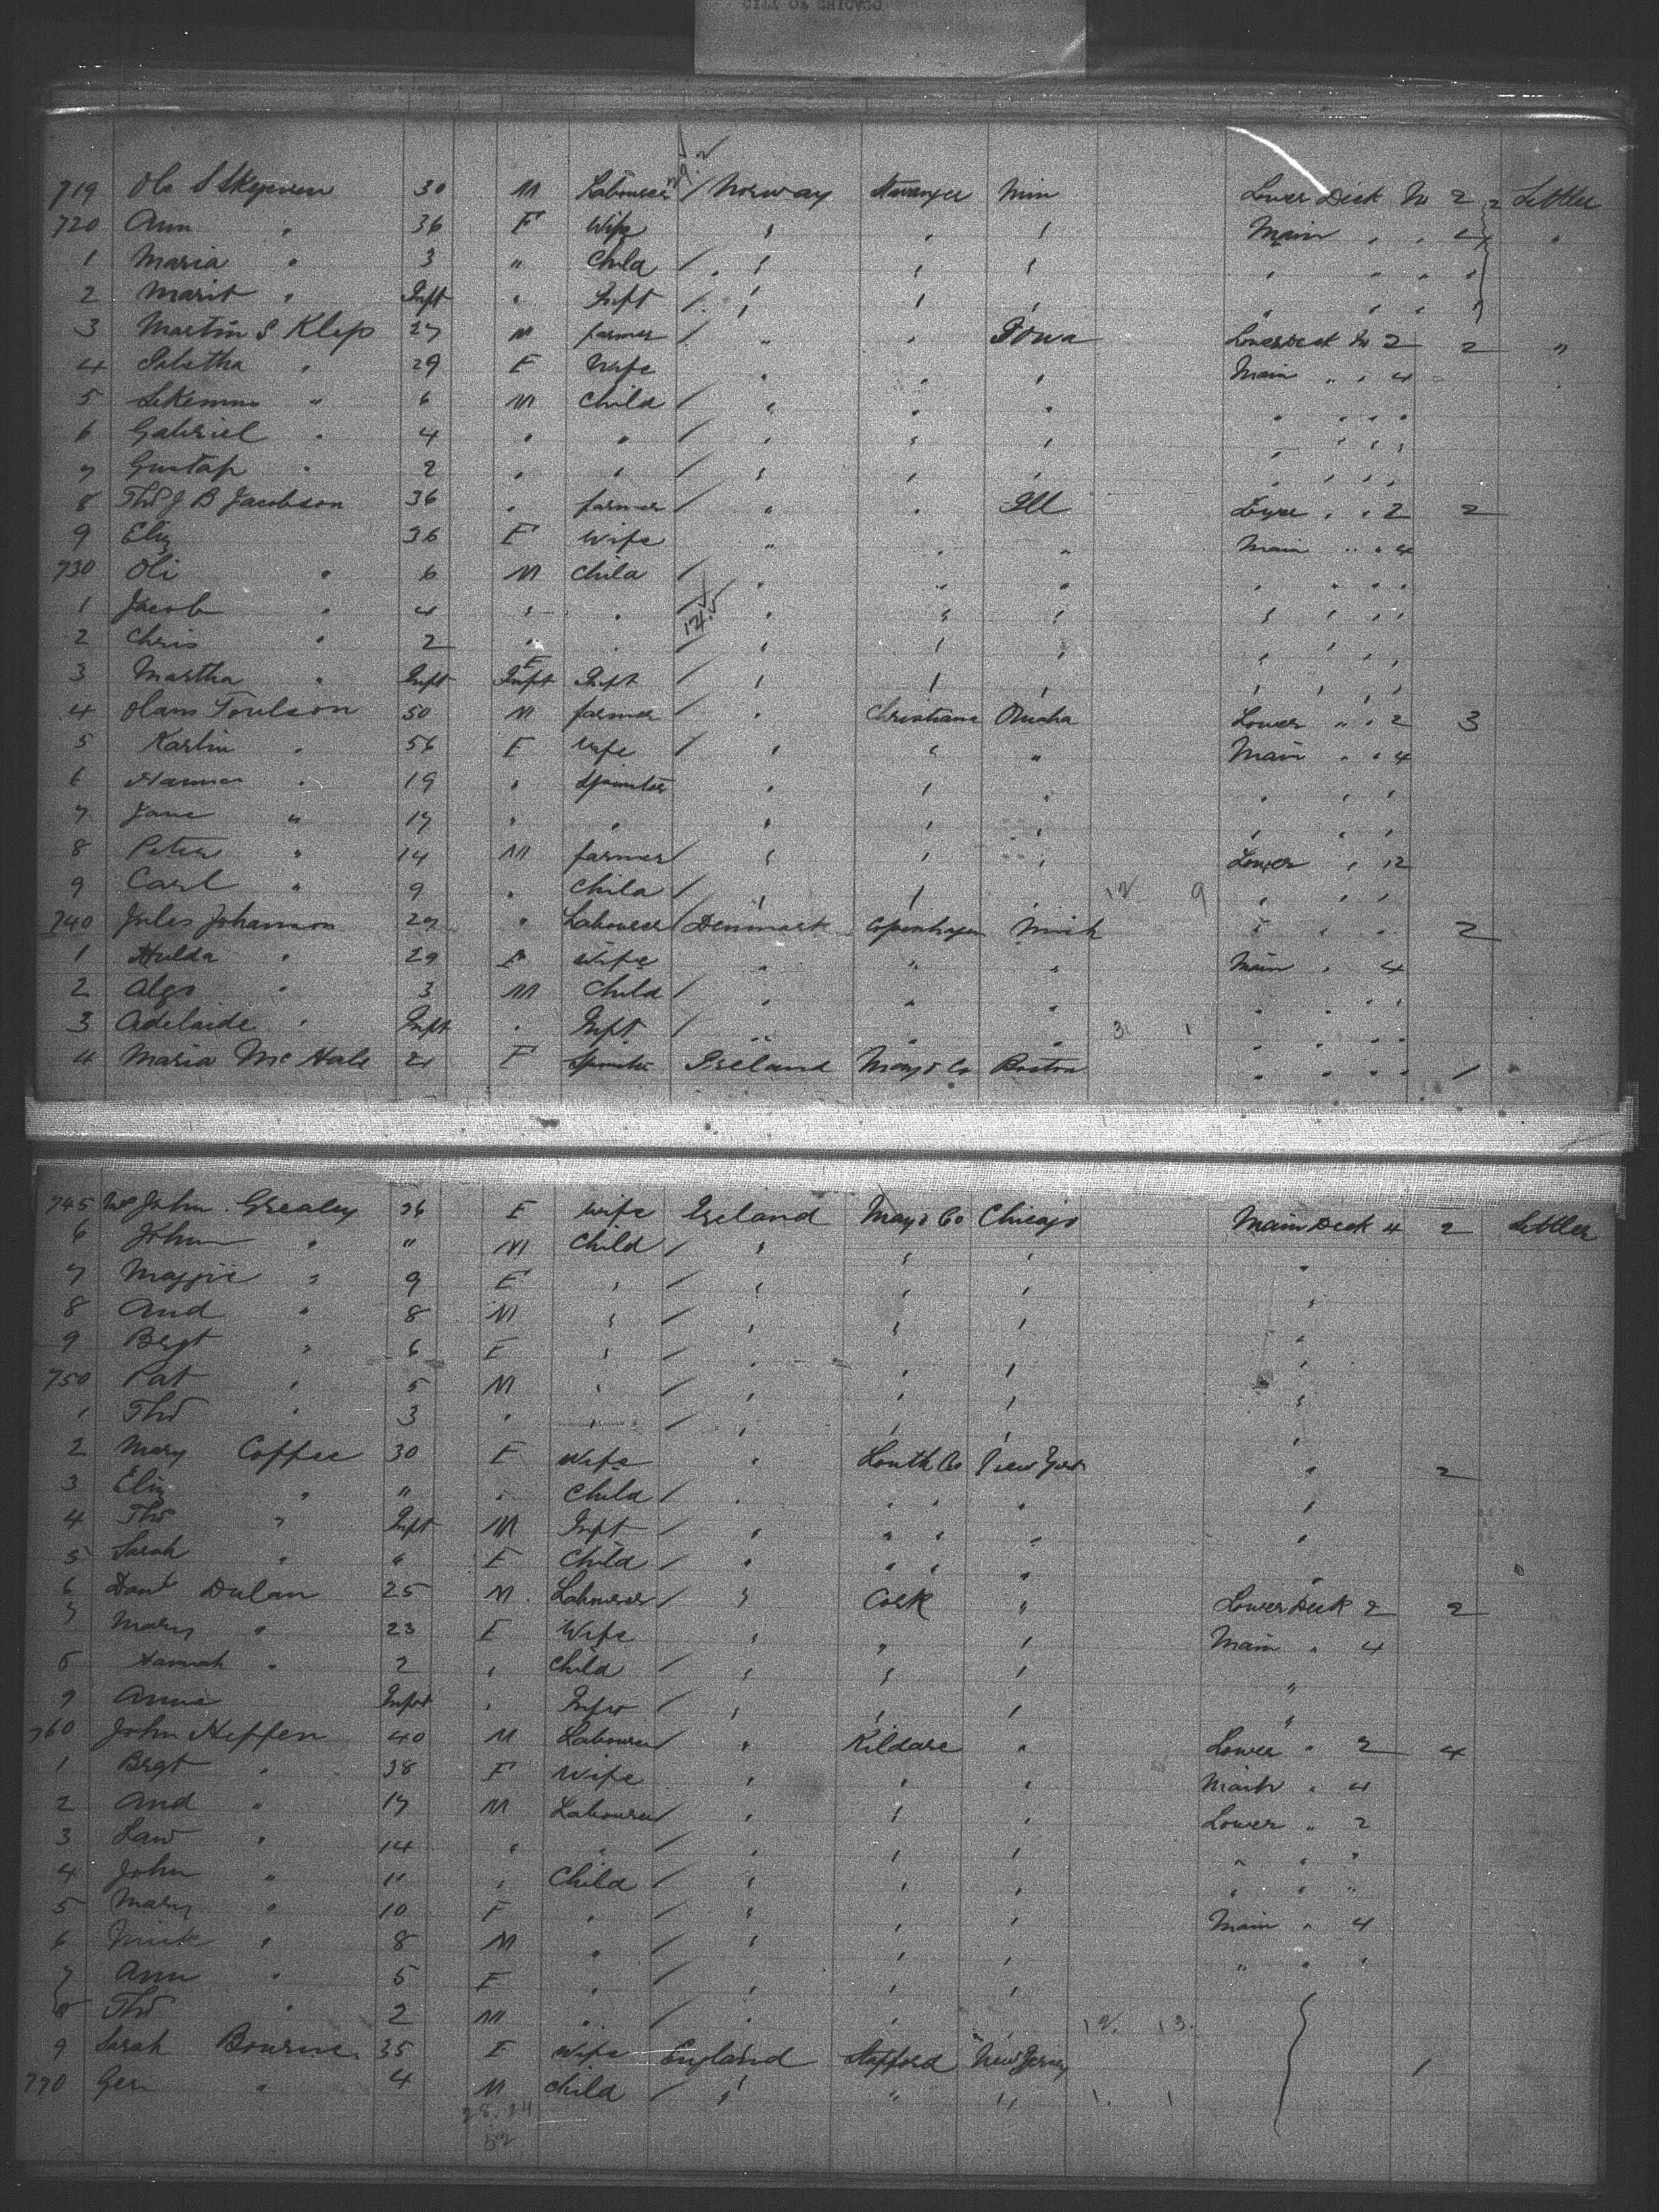 719 Ole S 30 M Labourer / Norway Stavanger Min Lower Deck No 2 2 Settler
720 Ann " 36 F Wife " " " Main " " 4 "
1 Maria " 3 " Child / " " " " " " "
2 Marit " Inft " Inft / " " " " " " "
3 Martin S Klep 27 M farmer / " " Iowa Lower Deck No 2 2 "
4 " 29 F Wife " " " Main " " 4
5 " 6 M Child / " " " " " " "
6 Gabriel " 4 " " / " " " " " " "
7 Gustaf " 2 " " / " " " " " " "
8 Thos J B Jacobson 36 " farmer / " " Ill Lower " " 2 2
9 Eliz 36 F Wife " " " Main " " 4
730 Oli " 6 M Child / " " " " " " "
1 Jacob " 4 " " / " " " " " " "
2 Chris " 2 " " / " " " " " " "
3 Martha " Inft F Inft Inft / " " " " " " "
4 Olans Toulson 50 M farmer / " Christiana Omaha Lower " " 2 3
5 Karlin " 56 F Wife / " " " Main " " 4
6 " 19 " Spinster " " " " " "
7 Jane " 17 " " " " " " " "
8 Peter " 14 M farmer / " " " Lower " 2
9 Carl " 9 " Child / " " " 12 9 " " "
740 Jules Johannson 27 " Labourer / Denmark Copenhagen Mich " " " 2
1 Hulda " 29 F Wife " " " Main " 4
2 Algo " 3 M Child / " " " " " "
3 Adelaide " Inft " Inft / " " " 3 1 " " "
4 Maria McHale 21 F Spinster Ireland Mayo Co Boston " " " " 1
745 Mrs John Grealey 36 F Wife Ireland Mayo Co Chicago Main Deck 4 2 Settler
6 John " " M Child / " " " "
7 Maggie " 9 F " / " " " "
8 And " 8 M " / " " " "
9 Brgt " 6 F " / " " " "
750 Pat " 5 M " / " " " "
1 Thos " 3 " " / " " " "
2 Mary Coffee 30 F Wife " Louth Co New York " 2
3 Eliz " " " Child / " " " " "
4 Thos " Inft M Inft / " " " " "
5 Sarah " " F Child / " " " " "
6 Danl Dulan 25 M Labourer / " Cork " Lower Deck 2 2
7 Mary " 23 F Wife " " " Main " 4
8 Hannah " 2 " Child / " " " "
9 Anne Inft " Inft / " " " "
760 John Heffen 40 M Labourer / " Kildare " Lower " 2 4
1 Brgt " 38 F Wife " " " Main " 4
2 And " 17 M Labourer / " " " Lower " 2
3 Law " 14 " " / " " " " " "
4 John " 11 " Child / " " " " " "
5 Mary " 10 F " / " " " Main " 4
6 Mick " 8 M " / " " " " " "
7 Ann " 5 F " / " " "
8 Thos " 2 M " / " " " 12. 13.
9 Sarah Bourne 35 F Wife England Stafford New Jersey 1
770 Geo " 4 M Child / " " " 1. 1
28. 24
52